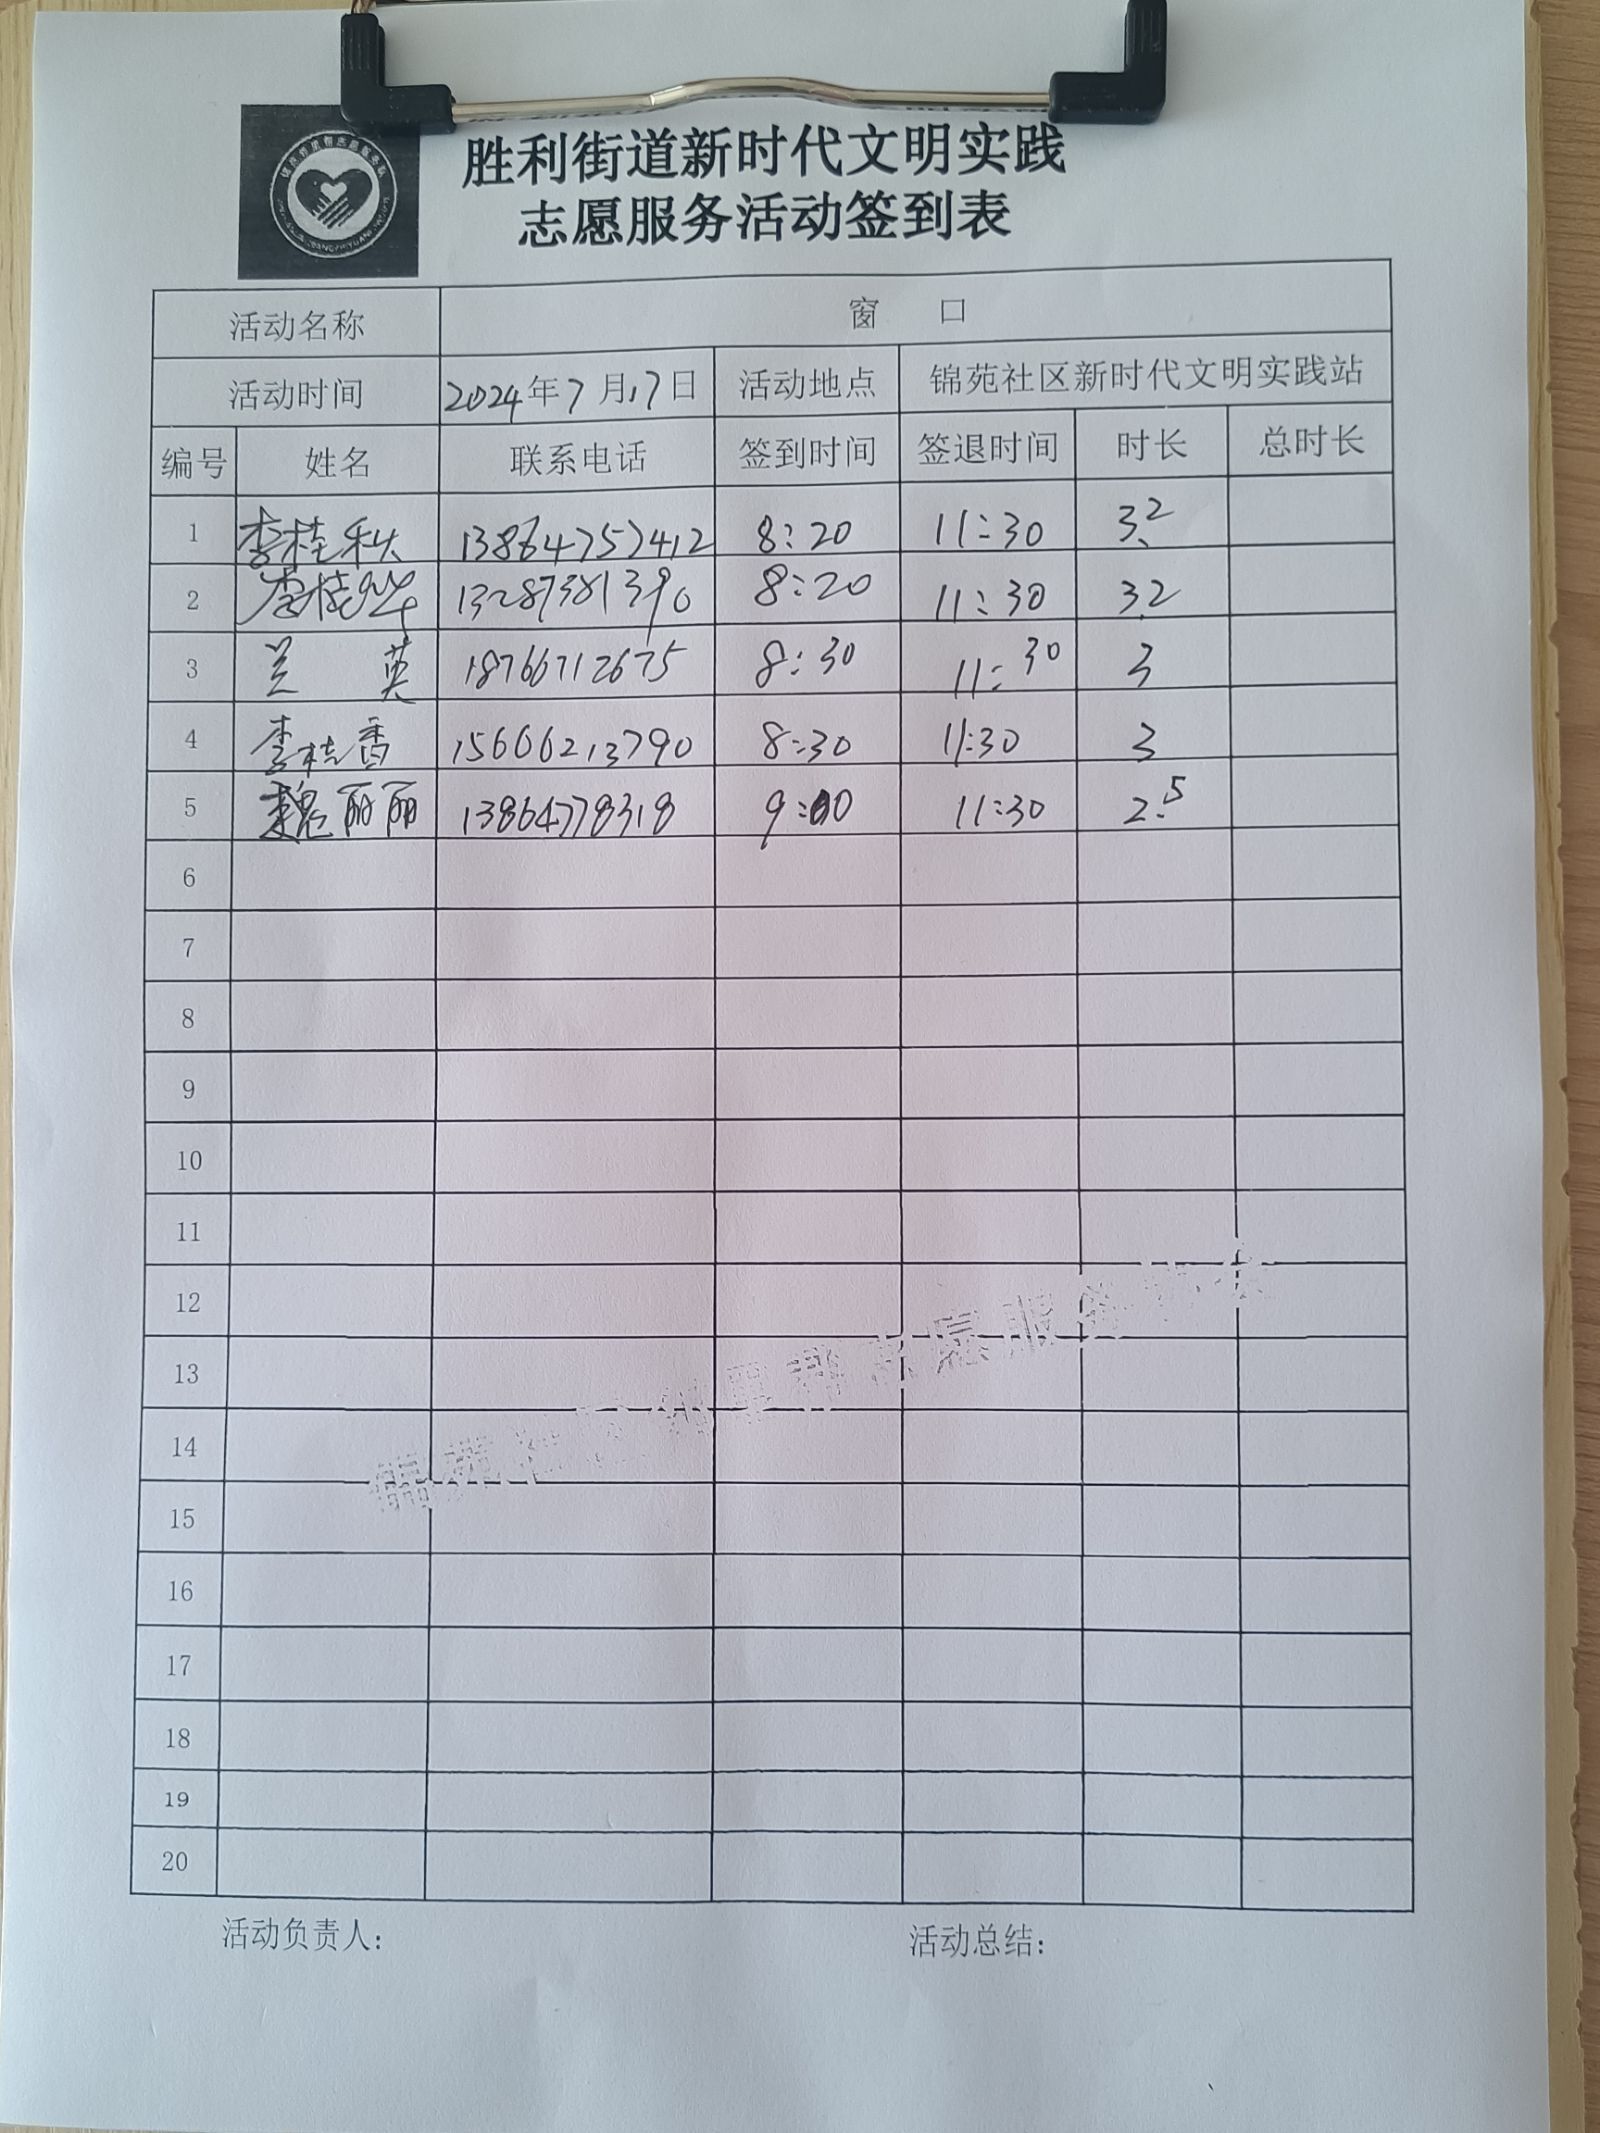 胜利街道新时代文明实践
志愿服务活动签到表
活动名称 窗 口
活动时间 2024年7月17日 活动地点 锦苑社区新时代文明实践站
编号 姓名 联系电话 签到时间 签退时间 时长 总时长
1 李桂秋 13864757412 8:20 11:30 3.2
2 李桂华 13287381390 8:20 11:30 3.2
3 兰 英 18766712675 8:30 11:30 3
4 李桂香 15666213790 8:30 11:30 3
5 魏丽丽 13864778318 9:00 11:30 2.5
6
7
8
9
10
11
12
13
14
15
16
17
18
19
20
锦苑社区邻里帮志愿服务
活动负责人: 活动总结: